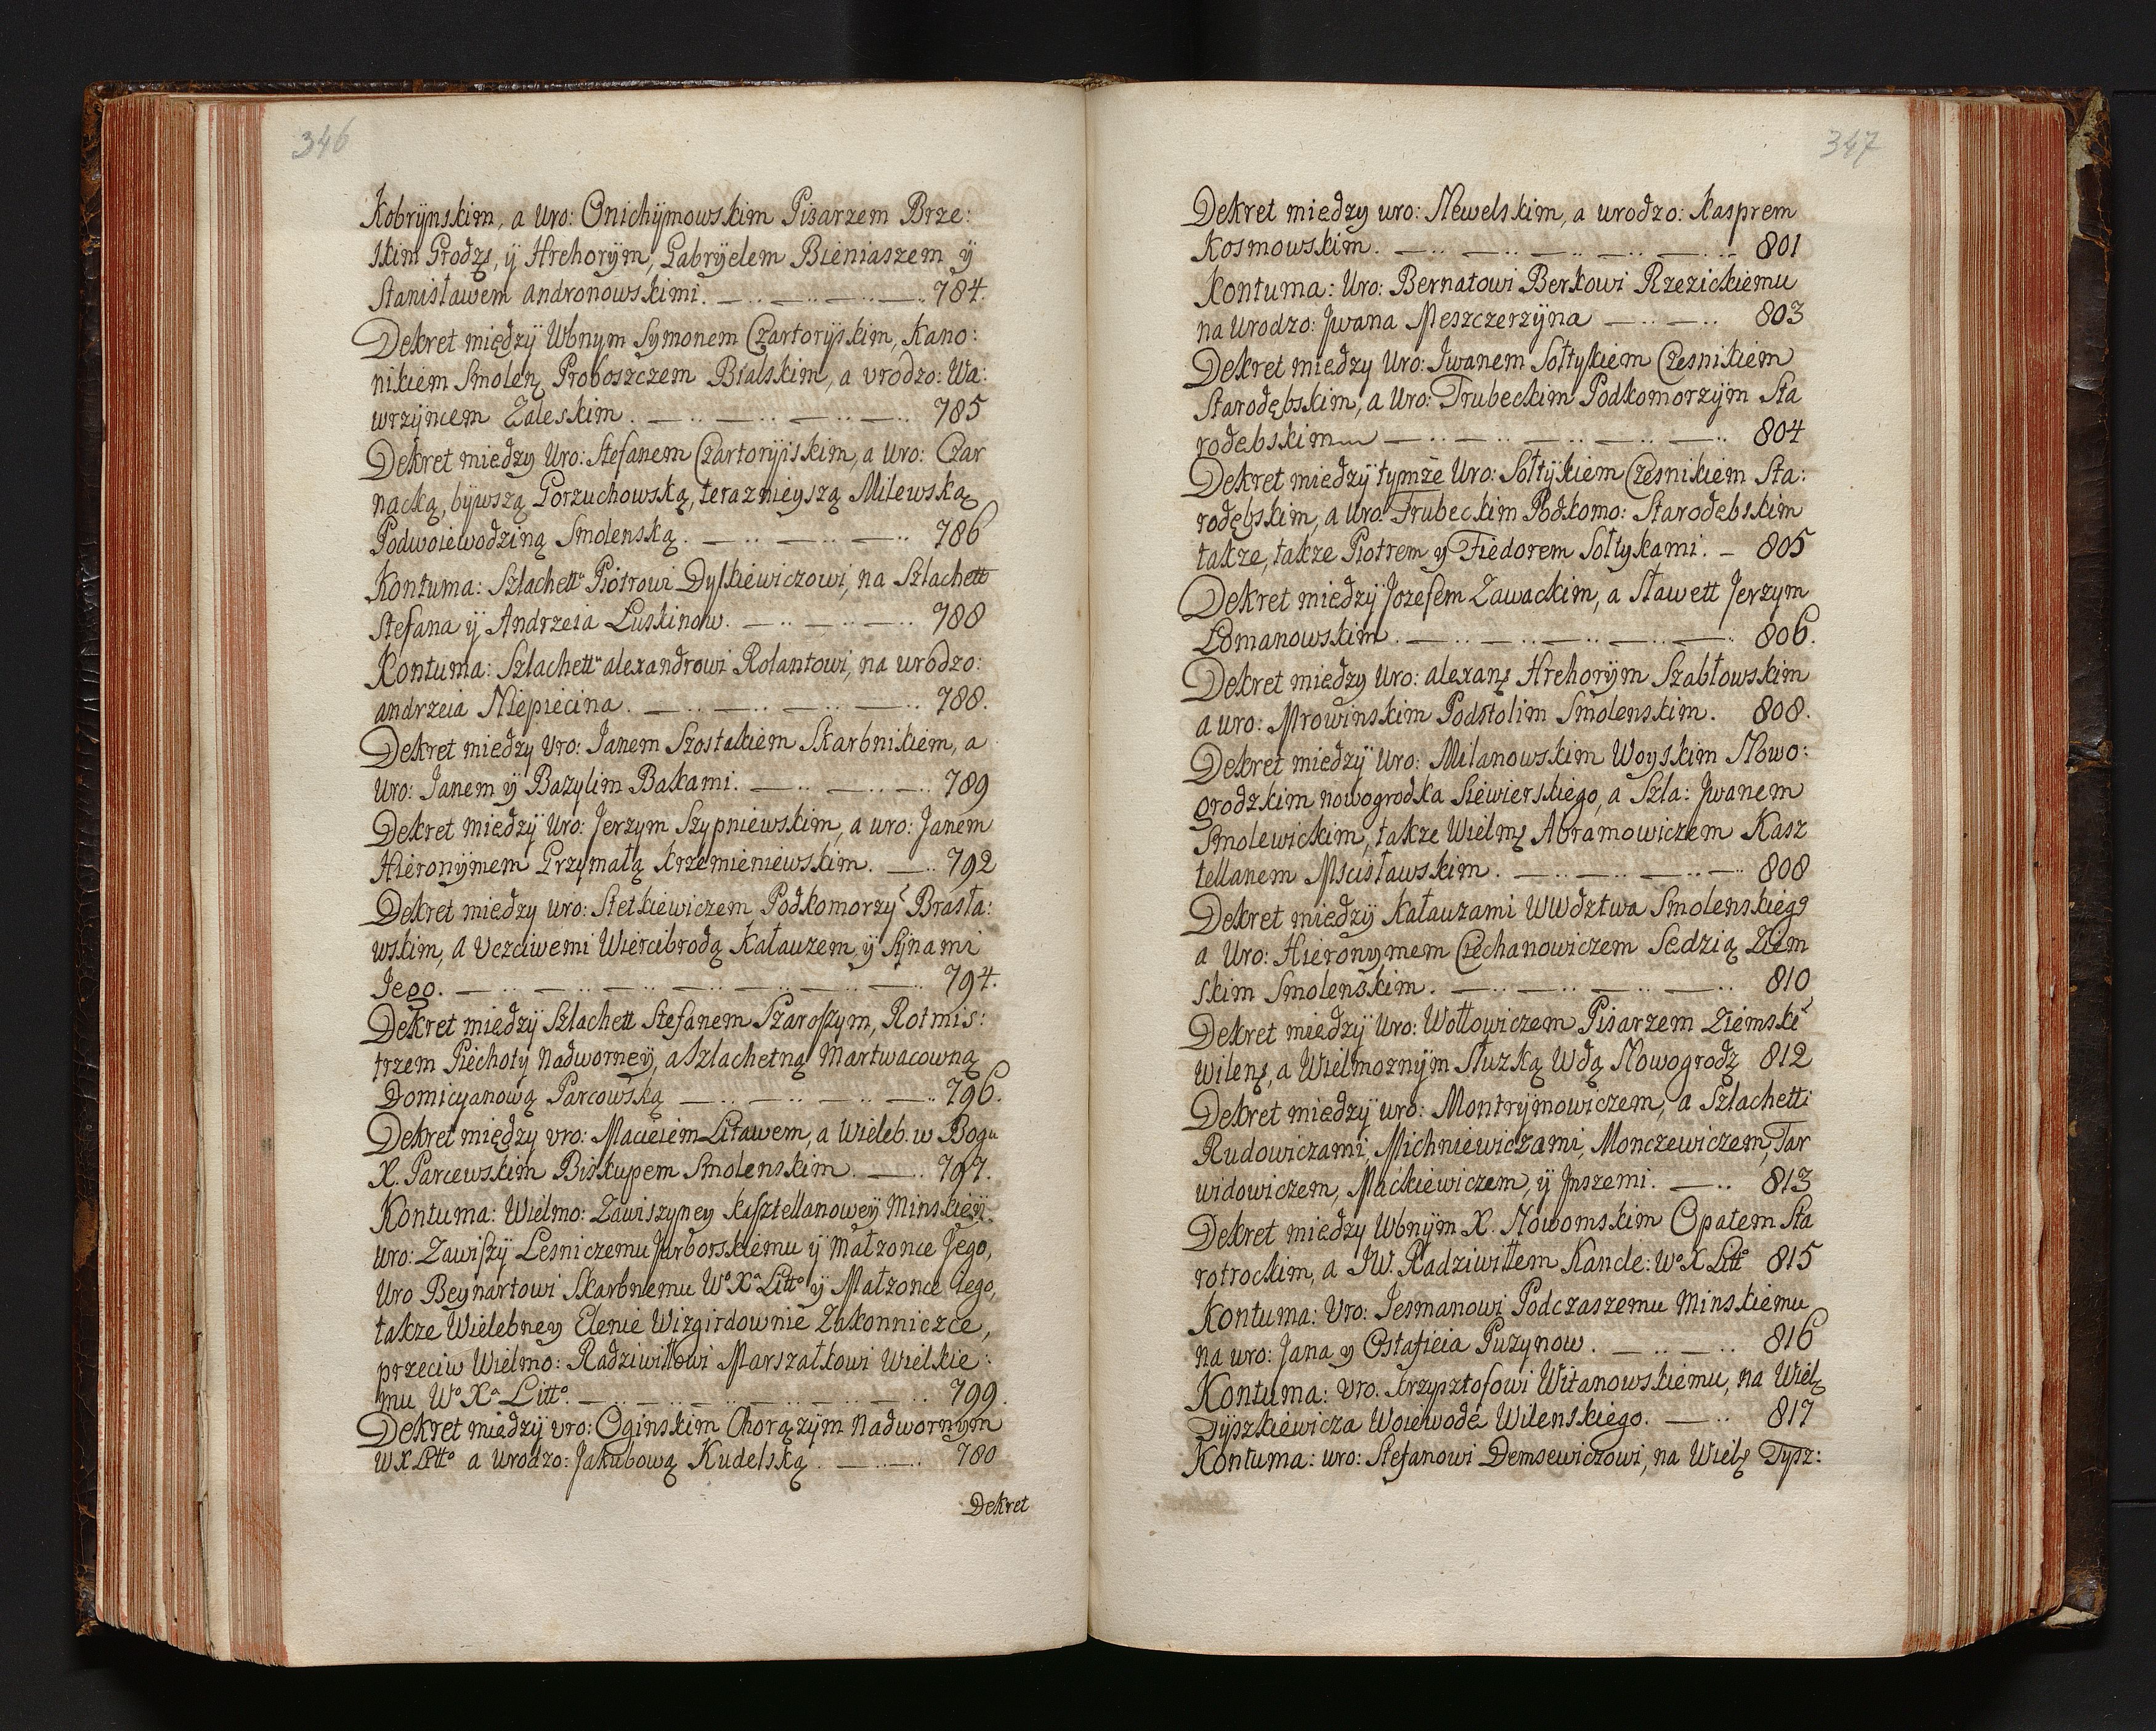 346
Kobrÿnskim, a Uro: Onichÿmowskim Pisarzem Brze:
skim Grodz, ÿ Hrehorÿm, Gabrÿelem Bieniaszem ÿ
Stanisławem andronowskimi. 784.
Dekret między Wbnym Symonem Czartorÿskim, Kano:
nikiem Smolen Proboszczem Bialskim, a vrodzo: Wa:
wrzÿncem Zaleskim. 785
Dekret miedzy Uro: Stefanem Czartorÿiskim, a Uro: Czar
nacką, bÿwszą Gorzuchowską, teraznieyszą Milewską
Podwoiewodziną Smolenską. 786
Kontuma: Szlachett Piotrowi Dyskiewiczowi, na Szlachett
Stefana ÿ Andrzeia Luskinow. 788
Kontuma: Szlachett alexandrowi Rolantowi, na urodzo:
andrzeia Niepiecina. 788.
Dekret miedzy Uro: Janem Szostakiem Skarbnikiem, a
Uro: Janem ÿ Bazylim Bakami. 789
Dekret miedzÿ Uro: Jerzym Szypniewskim, a uro: Janem
Hieronÿmem Grzymałą Krzemieniewskim. 792
Dekret miedzy uro: Stetkiewiczem Podkomorzy Brasła:
wskim, a Uczciwemi Wiercibrodą Kałauzem, ÿ Sÿnami
Jego. 794.
Dekret miedzÿ Szlachett Stefanem Szaroszym, Rotmis:
trzem Piechoty Nadworneÿ, a Szlachetną Martwacowną
Domicyanową Parcowską 796.
Dekret między vro: Macieiem Litawem, a Wieleb. w Bogu
X. Parcewskim Biskupem Smolenskim. 797.
Kontuma: Wielmo: Zawiszyney Kasztellanoweÿ Minskieÿ.
uro: Zawiszÿ Lesniczemu Jurborskiemu ÿ Małzonce Jego,
Uro Beynartowi Skarbnemu Wo Xa Litto ÿ Małzonce iego,
takze Wielebney Elenie Wizgirdownie Zakonniczce,
przeciw Wielmo: Radziwiłłowi Marszałkowi Wielkie:
mu Wo Xa Litto. 799.
Dekret miedzy vro: Oginskim Chorązym Nadwornym
W X Litto a Urodzo: Jakubową Kudelską. 780
Dekret
347
Dekret miedzy uro: Newelskim, a urodzo: Kasprem
Kosmowskim. 801
Kontuma: Uro: Bernatowi Berkowi Rzezickiemu
na Urodzo: Jwana Meszczerzÿna 803
Dekret miedzy Uro: Iwanem Sołtykiem Czesnikiem
Starodębskim, a Uro: Trubeckim Podkomorzÿm Sta
rodebskim 804
Dekret miedzÿ tymże Uro: Sołtÿkiem Czesnikiem Sta:
rodębskim, a Uro: Trubeckim Podkomo: Starodebskim
takze, takze Piotrem y Fiedorem Sołtykami. 805
Dekret miedzÿ Jozefem Zawackim, a Sławett Jerzym
Łomanowskim. 806.
Dekret miedzy Uro: alexan Hrehorÿm Szabłowskim
a uro: Mrowinskim Podstolim Smolenskim. 808.
Dekret miedzÿ Uro: Milanowskim Woyskim Nowo:
grodzkim nowogrodka Siewierskiego, a Szla: Jwanem
Smolewickim, takze Wielm Abramowiczem Kasz
tellanem Mscisławskim. 808
Dekret miedzÿ Kałauzami WWdztwa Smolenskiego
a Uro: Hieronymem Czechanowiczem Sedzią Ziem
skim Smolenskim. 810
Dekret miedzÿ Uro: Wołłowiczem Pisarzem Ziemski
Wilen, a Wielmoznÿm Słuzką Wdą Nowogrodz 812
Dekret miedzÿ uro: Montrÿmowiczem, a Szlachetti
Rudowiczami, Michniewiczami, Monczewiczem, Tar
widowiczem, Mackiewiczem, ÿ Jnszemi. 813
Dekret miedzy Wbnÿm X. Nowomskim Opatem Sta
rotrockim, a JW. Radziwiłłem Kancle: Wo X Litto 815
Kontuma: Uro: Jesmanowi Podczaszemu Minskiemu
na uro: Jana y Ostafieia Puzynow. 816
Kontuma: vro. Krzysztofowi Witanowskiemu, na Wiel
Tÿszkiewicza Woiewode Wilenskiego. 817
Kontuma: uro: Stefanowi Demsewiczowi, na Wiel Tysz: